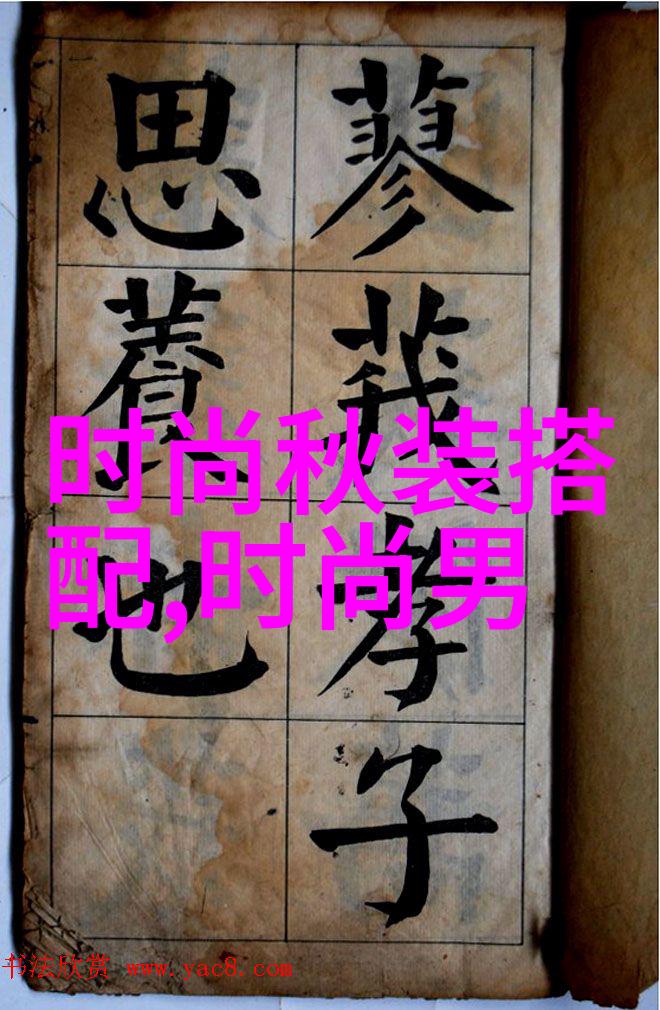 蓼莪孝子
思養也
时尚秋装搭
配,时尚男
书法欣赏 www.yac8.com